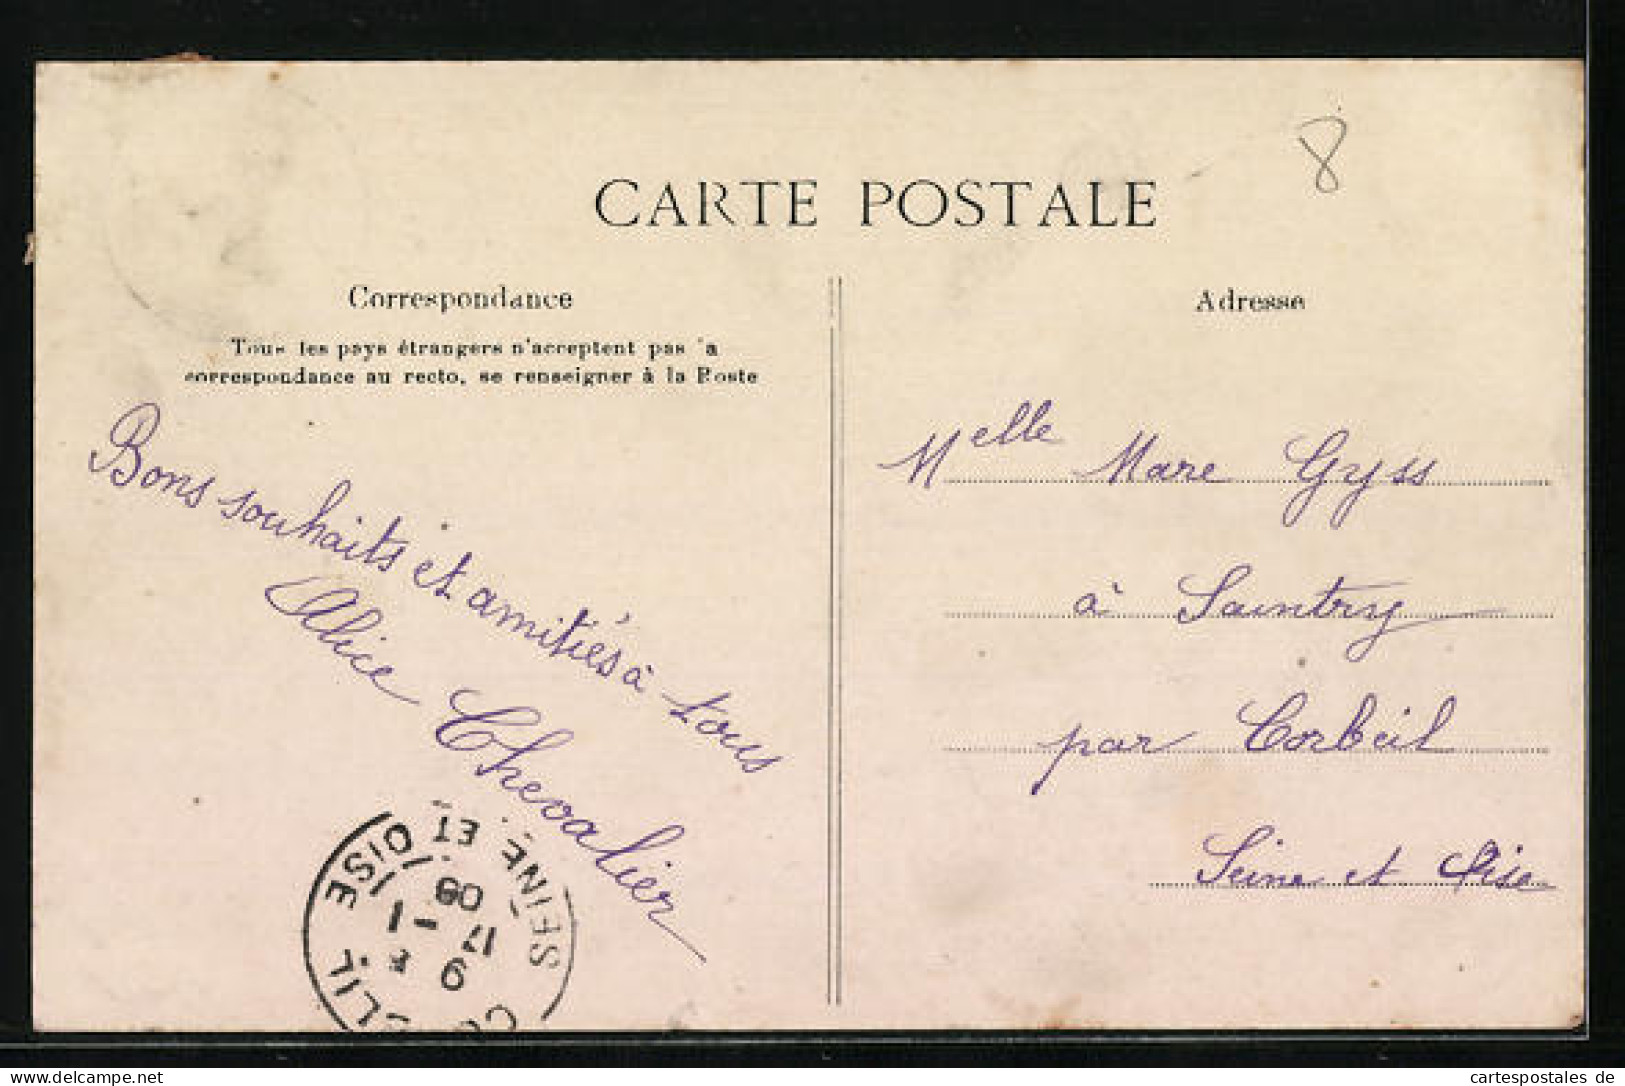 CARTE POSTALE
8
Correspondance
Tous les pays étrangers n'acceptent pas la
correspondance au recto, se renseigner à la Poste
Bons souhaits et amitiés à tous
Alice Chevalier
Adresse
Melle Marie Gyss
à Saintry
par Corbeil
Seine et Oise
CORBEIL
SEINE ET OISE
9
17 - 1
09
hippostcard.com / DELCAMPE
cartespostales de